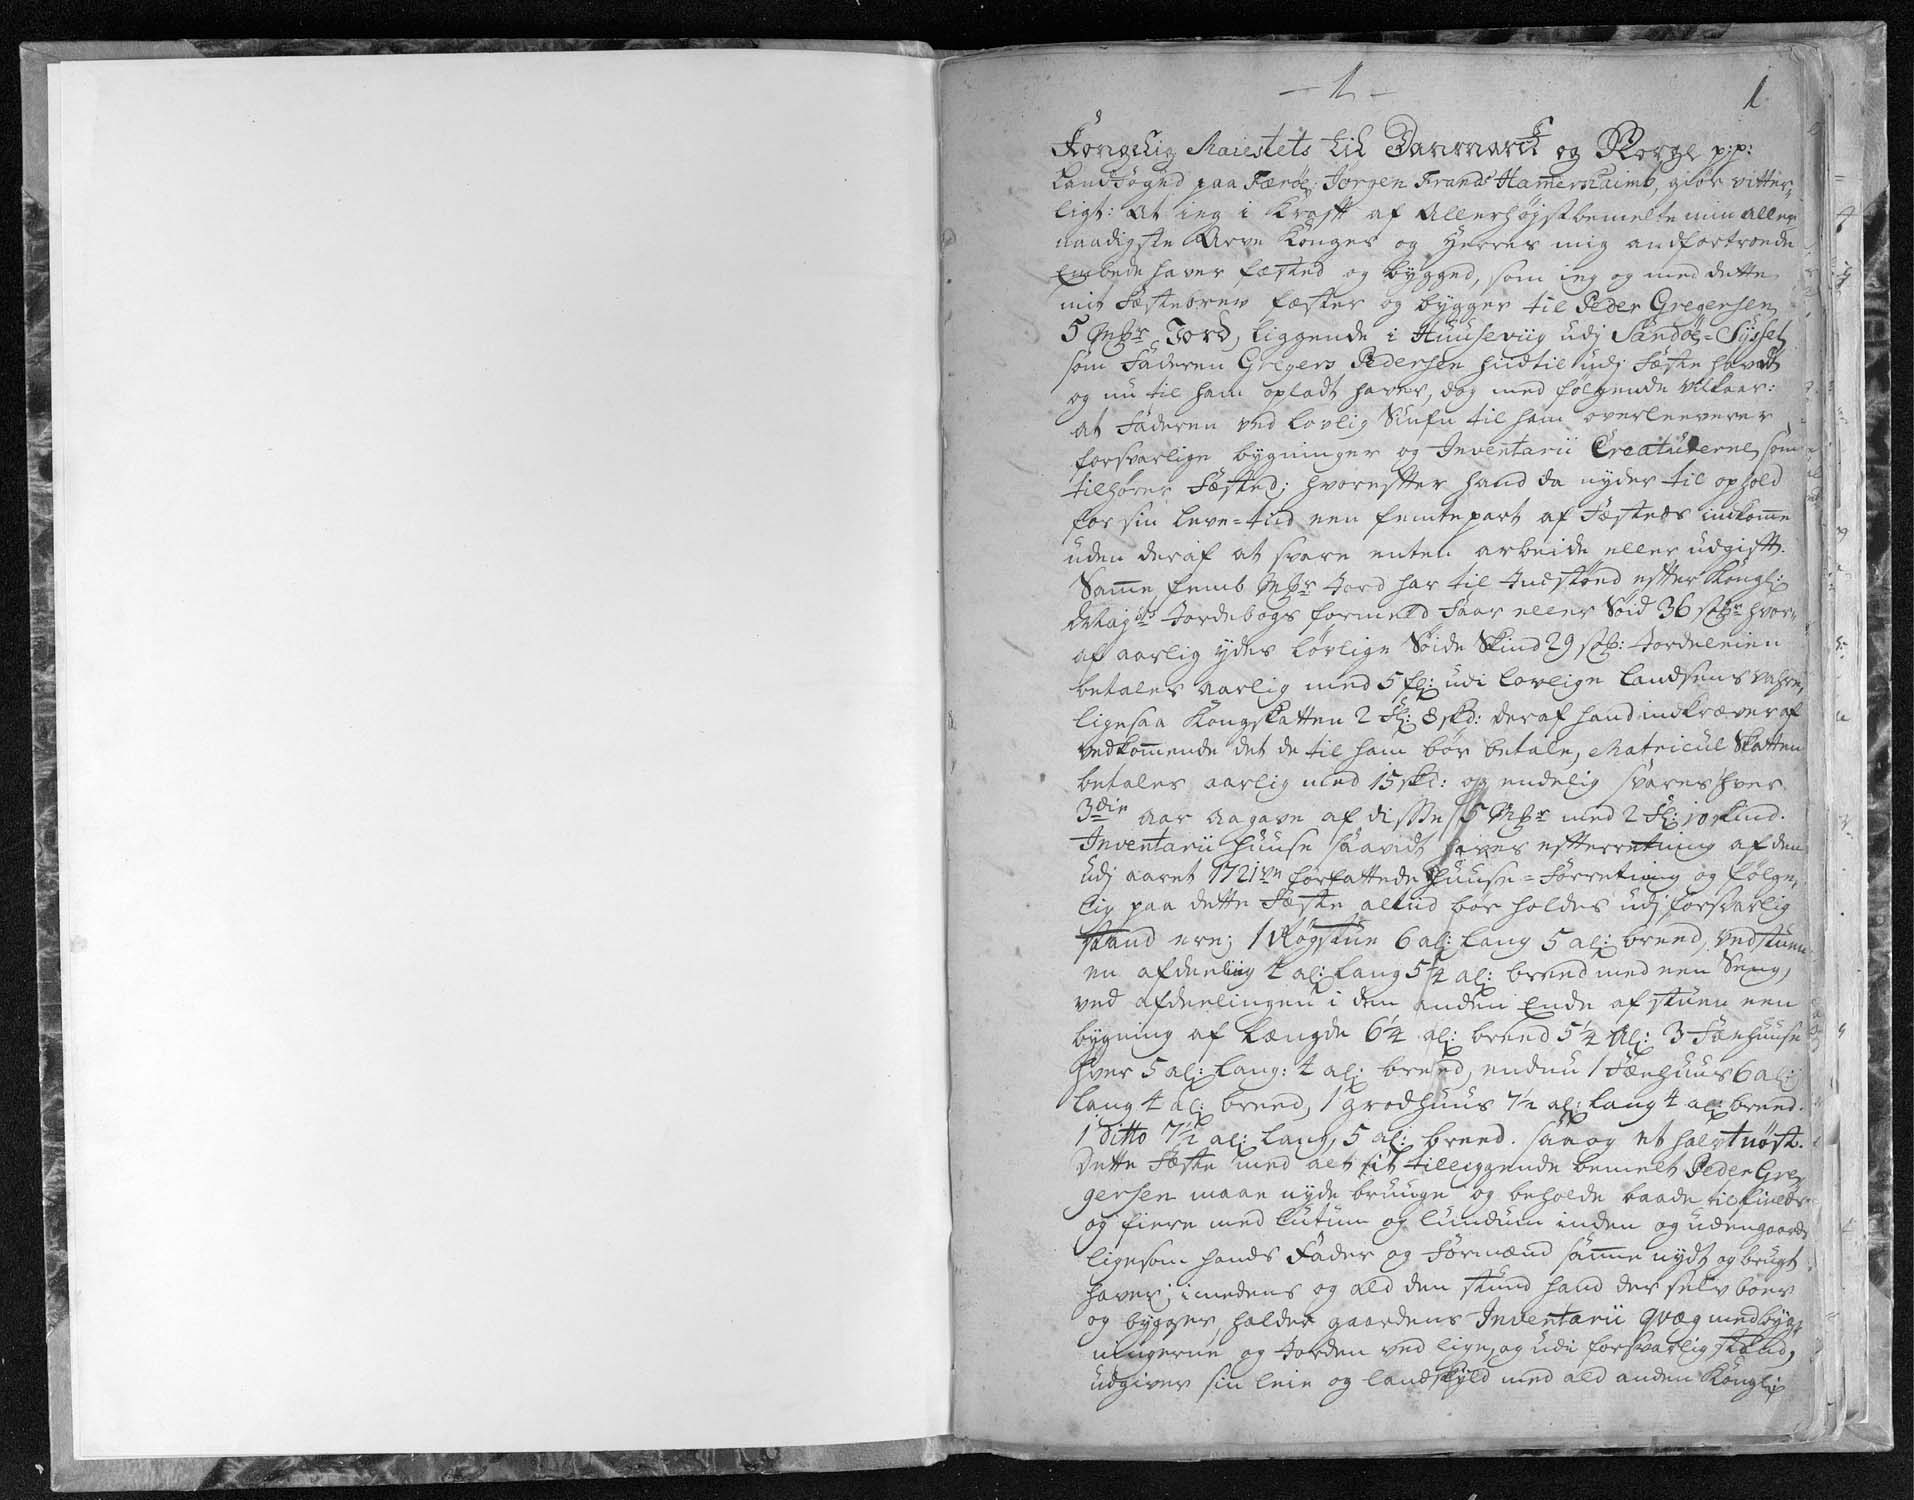 - 1 -
1.
Kongelig Maiestets til Danmarck og Norge p:p:
Landfoged paa Færöe, Jörgen Frands Hamershaimb, giör vitter-
ligt: At ieg i Krafft af Allerhöjstbemelte min aller-
naadigste Arve Konges og Herres mig andfortroede
Embede haver fæsted og bygged, som ieg og med dette
mit Fæstebrev fæster og bygger til Peder Gregersen
5 Mkr Jord, liggende i Huuseviig udj Sandöe-Syssel,
som Faderen Gregers Pedersen hidtil udj Fæste havdt
og nu til ham opladt haver, dog med fölgende vilkaar:
at Faderen ved lovlig Siufn til ham overleeverer
forsvarlige bygninger og Inventarii Creaturerne, som
tilhörer Fæsted; hvoreffter hand da nyder til ophold
for sin leve-tiid een femtepart af Fæstets indkome
uden deraf at svare enten arbeide eller udgifft.
Same femb Mkr Jord har til Indstönd effter Kongl:
Mayts Jordebogs formeld Faar eller Söid 36 stkr hvor-
af aarlig ydes lovlige Söide Skind 29 stk: Jordeleien
betales aarlig med 5 fl: udi lovlige Landsens vahre,
ligesaa Kongskatten 2 fl: 8 skd: deraf hand indkræver af
vedkomende det de til ham bör betale, Matricul Skatten
betales aarlig med 15 skd: og endelig svares hver
3die Aar Aagave af disse 5 Mkr med 2 fl: 10 skind.
Inventarii Huuse saavidt haves effterretning af den
udj aaret 1721ve forfattede Huuse-Forretning og fölge-
lig paa dette Fæste altid bör holdes udj forsvarlig
stand ere; 1 Rögstue 6 al: lang 5 al: breed, ved stuen
en afdeeling 4 al: lang 5 1/4 al: breed med een Seng,
ved afdeelingen i den anden Ende af stuen een
bygning af længde 6 1/4 al: breed 5 1/4 Al: 3 Fæehuuse
hver 5 al: lang: 4 al: breed, endnu 1 Fæehuus 6 al:
lang 4 al: breed, 1 grodhuus 7 1/2 al: lang 4 al: breed.
1 Ditto 7 1/2 al: lang, 5 al: breed. saa og et halvt nöst.
Dette Fæste med alt sit tilliggende bemelt Peder Gre-
gersen maae nyde bruuge og beholde baade til fields
og fiere med lutum og lundum inden og udengaards
ligesom hands Fader og Formænd same nydt og brugt
haver; imedens og ald den stund hand der selv boer
og bygger, holder gaardens Inventarii qvæg med byg-
ningerne og Jorden ved lige, og udi forsvarlig stand,
udgiver sin leie og landskyld med ald anden Kongl: